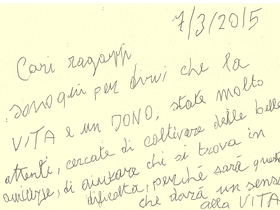 7/3/2015
Cari ragazzi,
sono qui per dirvi che la
VITA è un DONO, state molto
attenti, cercate di coltivare delle belle
amicizie, di aiutare chi si trova in
difficoltà, perché sarà questo
che darà un senso
alla VITA